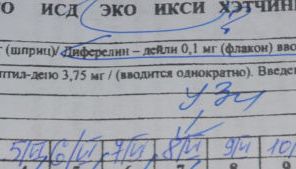 ТО ИСД ЭКО ИКСИ ХЭТЧИН
г (шприц)/ Диферелин – дейли 0,1 мг (флакон) вво
птил-депо 3,75 мг / (вводится однократно). Введе
УЗИ
5/VI 6/VI 7/VI 8/VI 9/VI 10/
8 9